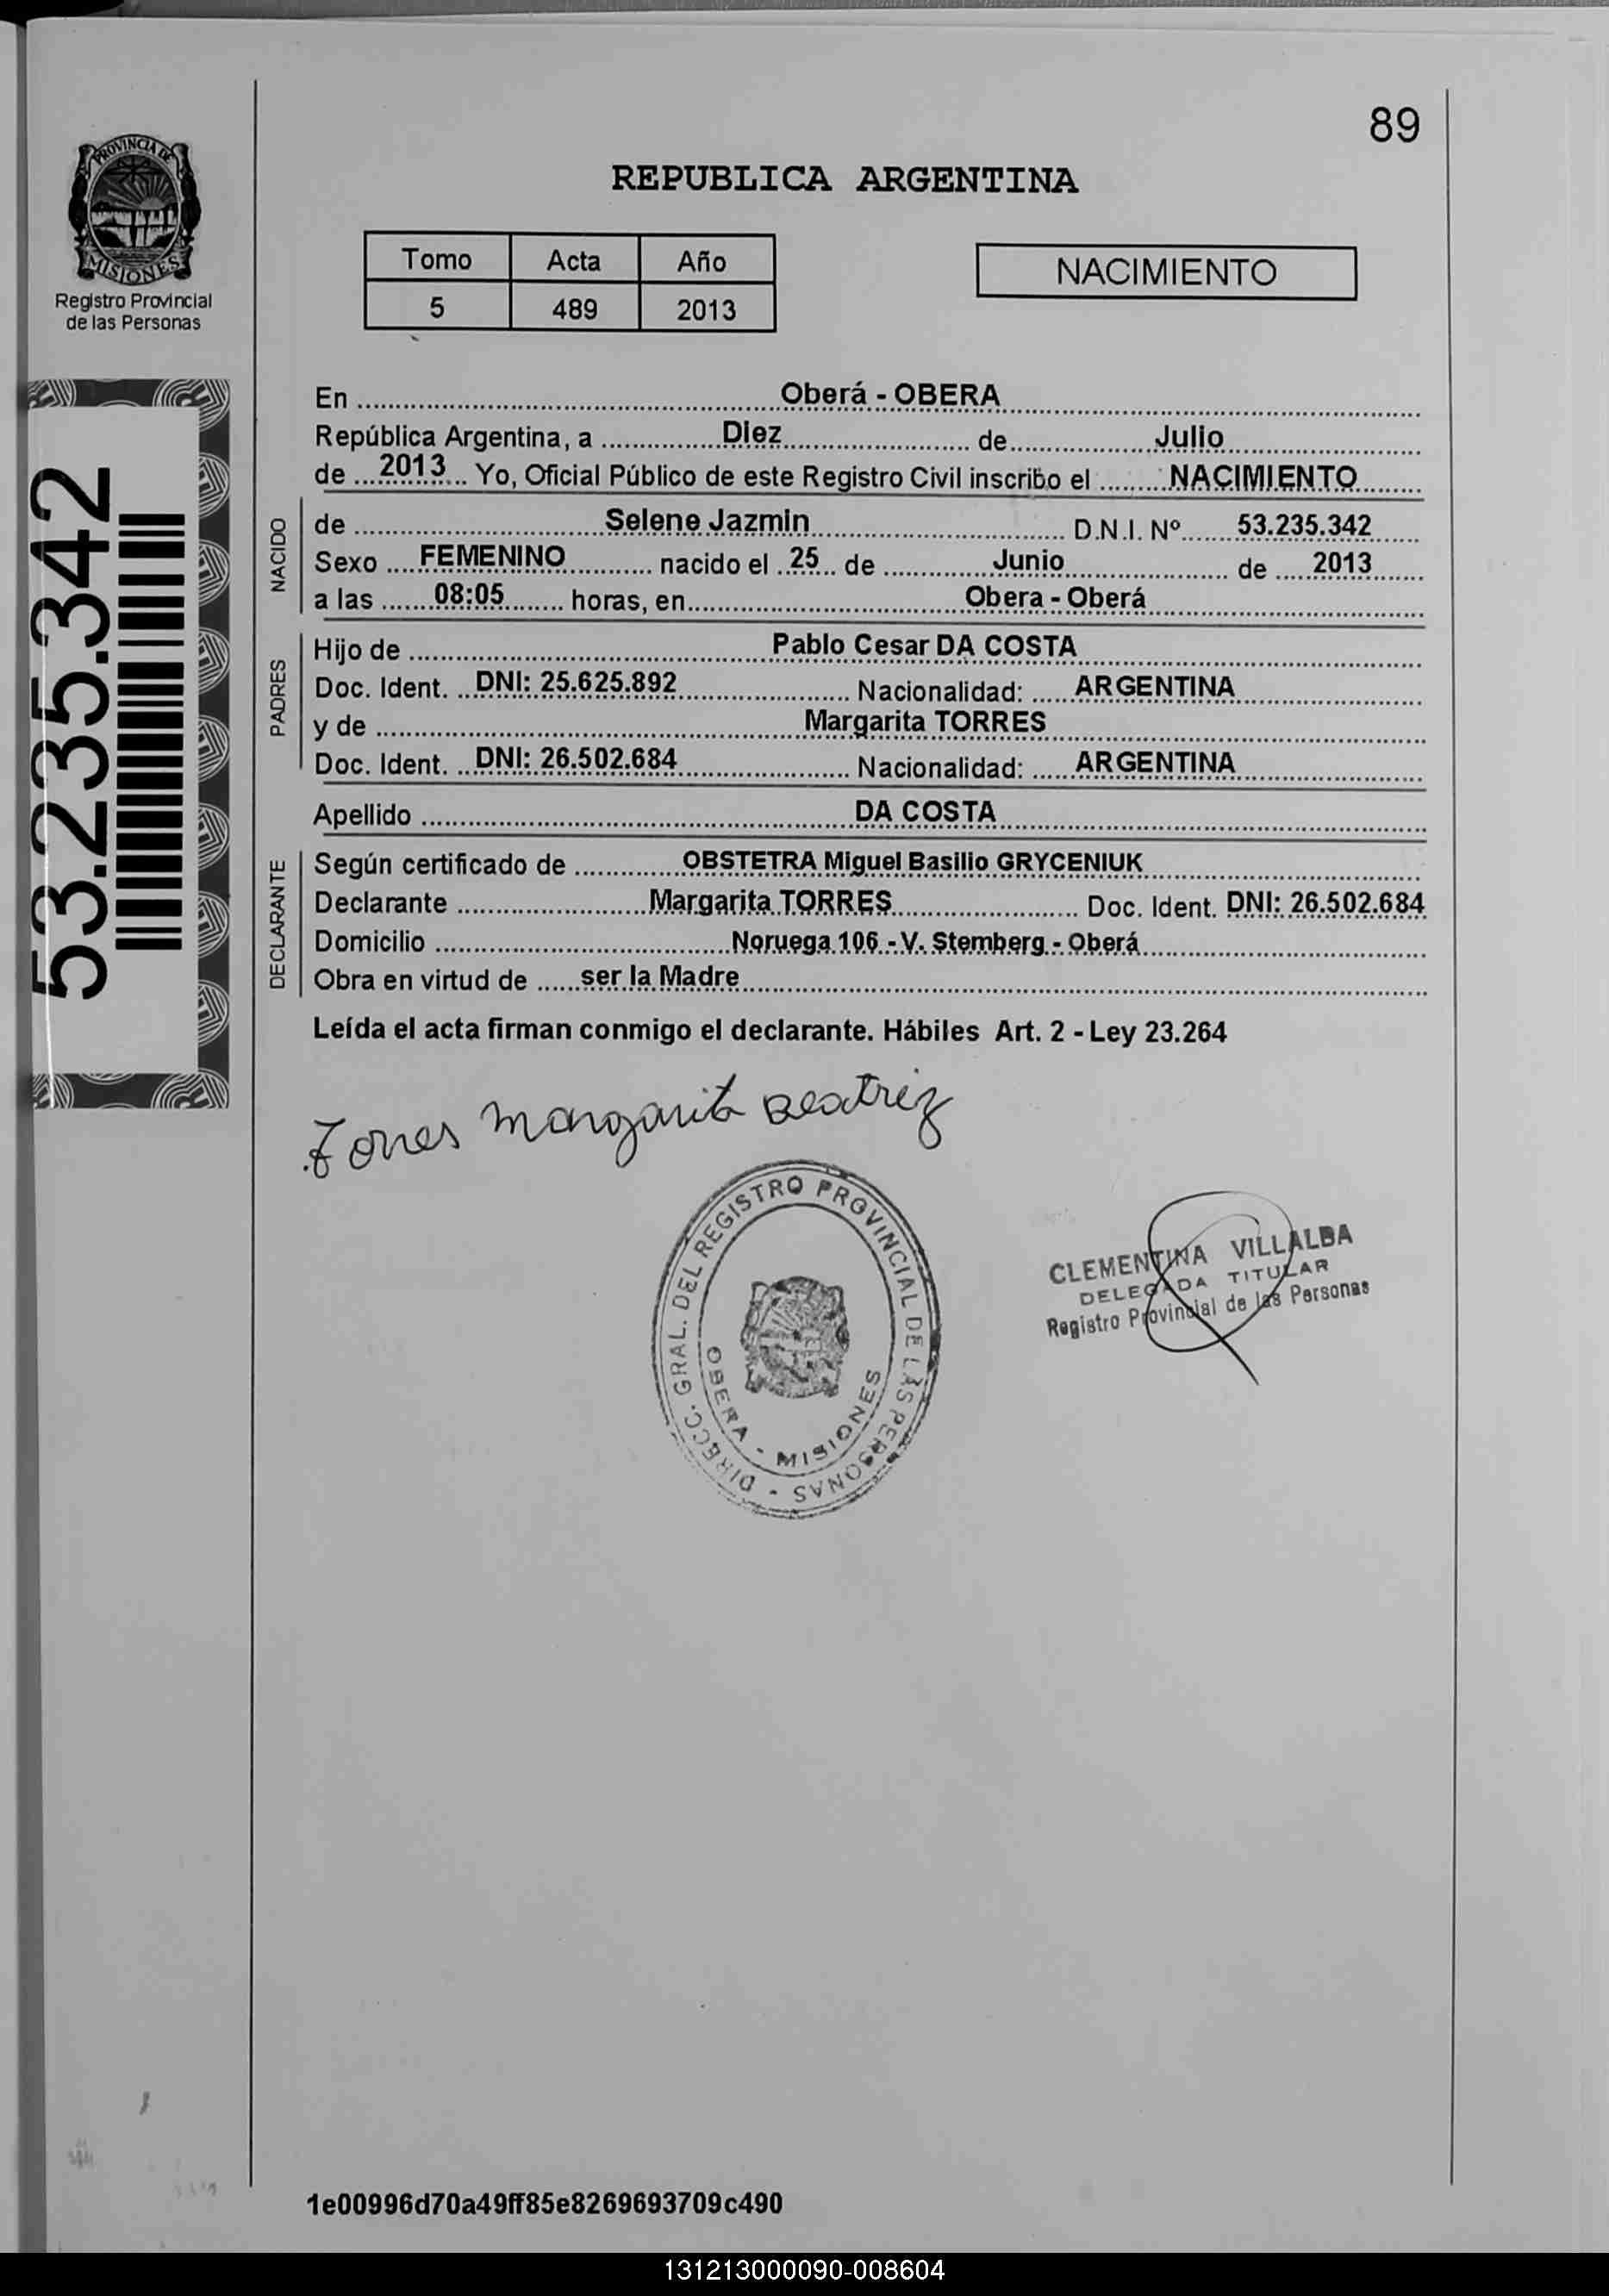 89
PROVINCIA DE
MISIONES
Registro Provincial
de las Personas
REPUBLICA ARGENTINA
Tomo Acta Año
5 489 2013
NACIMIENTO
53.235.342
En Oberá - OBERA
República Argentina, a Diez de Julio
de 2013 Yo, Oficial Público de este Registro Civil inscribo el NACIMIENTO
NACIDO
de Selene Jazmin D.N.I. Nº 53.235.342
Sexo FEMENINO nacido el 25 de Junio de 2013
a las 08:05 horas, en Obera - Oberá
PADRES
Hijo de Pablo Cesar DA COSTA
Doc. Ident. DNI: 25.625.892 Nacionalidad: ARGENTINA
y de Margarita TORRES
Doc. Ident. DNI: 26.502.684 Nacionalidad: ARGENTINA
Apellido DA COSTA
DECLARANTE
Según certificado de OBSTETRA Miguel Basilio GRYCENIUK
Declarante Margarita TORRES Doc. Ident. DNI: 26.502.684
Domicilio Noruega 106 - V. Stemberg - Oberá
Obra en virtud de ser la Madre
Leída el acta firman conmigo el declarante. Hábiles Art. 2 - Ley 23.264
Torres Margarita Beatriz
DIRECC. GRAL. DEL REGISTRO PROVINCIAL DE LAS PERSONAS -
OBERA - MISIONES
CLEMENTINA VILLALBA
DELEGADA TITULAR
Registro Provincial de las Personas
1e00996d70a49ff85e8269693709c490
131213000090-008604